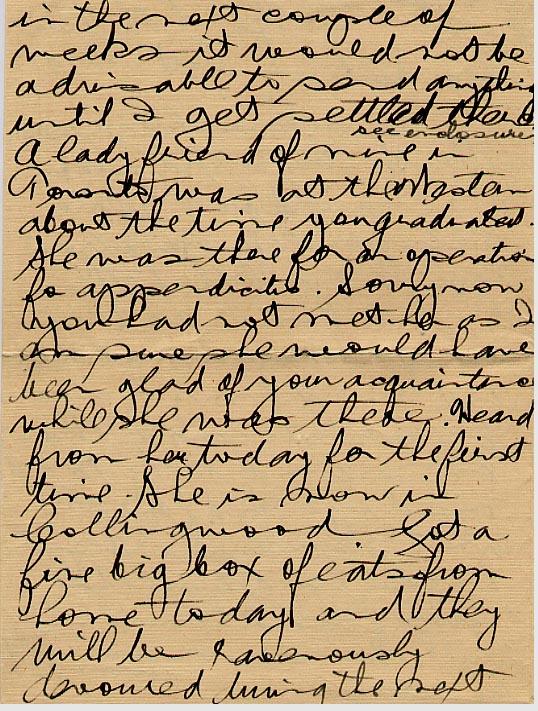 in the next couple of
weeks it would not be
advisable to send anything
until I get settled there
see enclosure
A lady friend of mine in
Toronto, was at the Western
about the time you graduated.
She was there for an operation
fo appendicitis. Sorry now
you had not met her as I
am sure she would have
been glad of your acquaintance
while she was there. Heard
from her today for the first
time. She is now in
Collingwood Got a
fine big box of eats from
home today and they
will be ravenously
devoured during the next